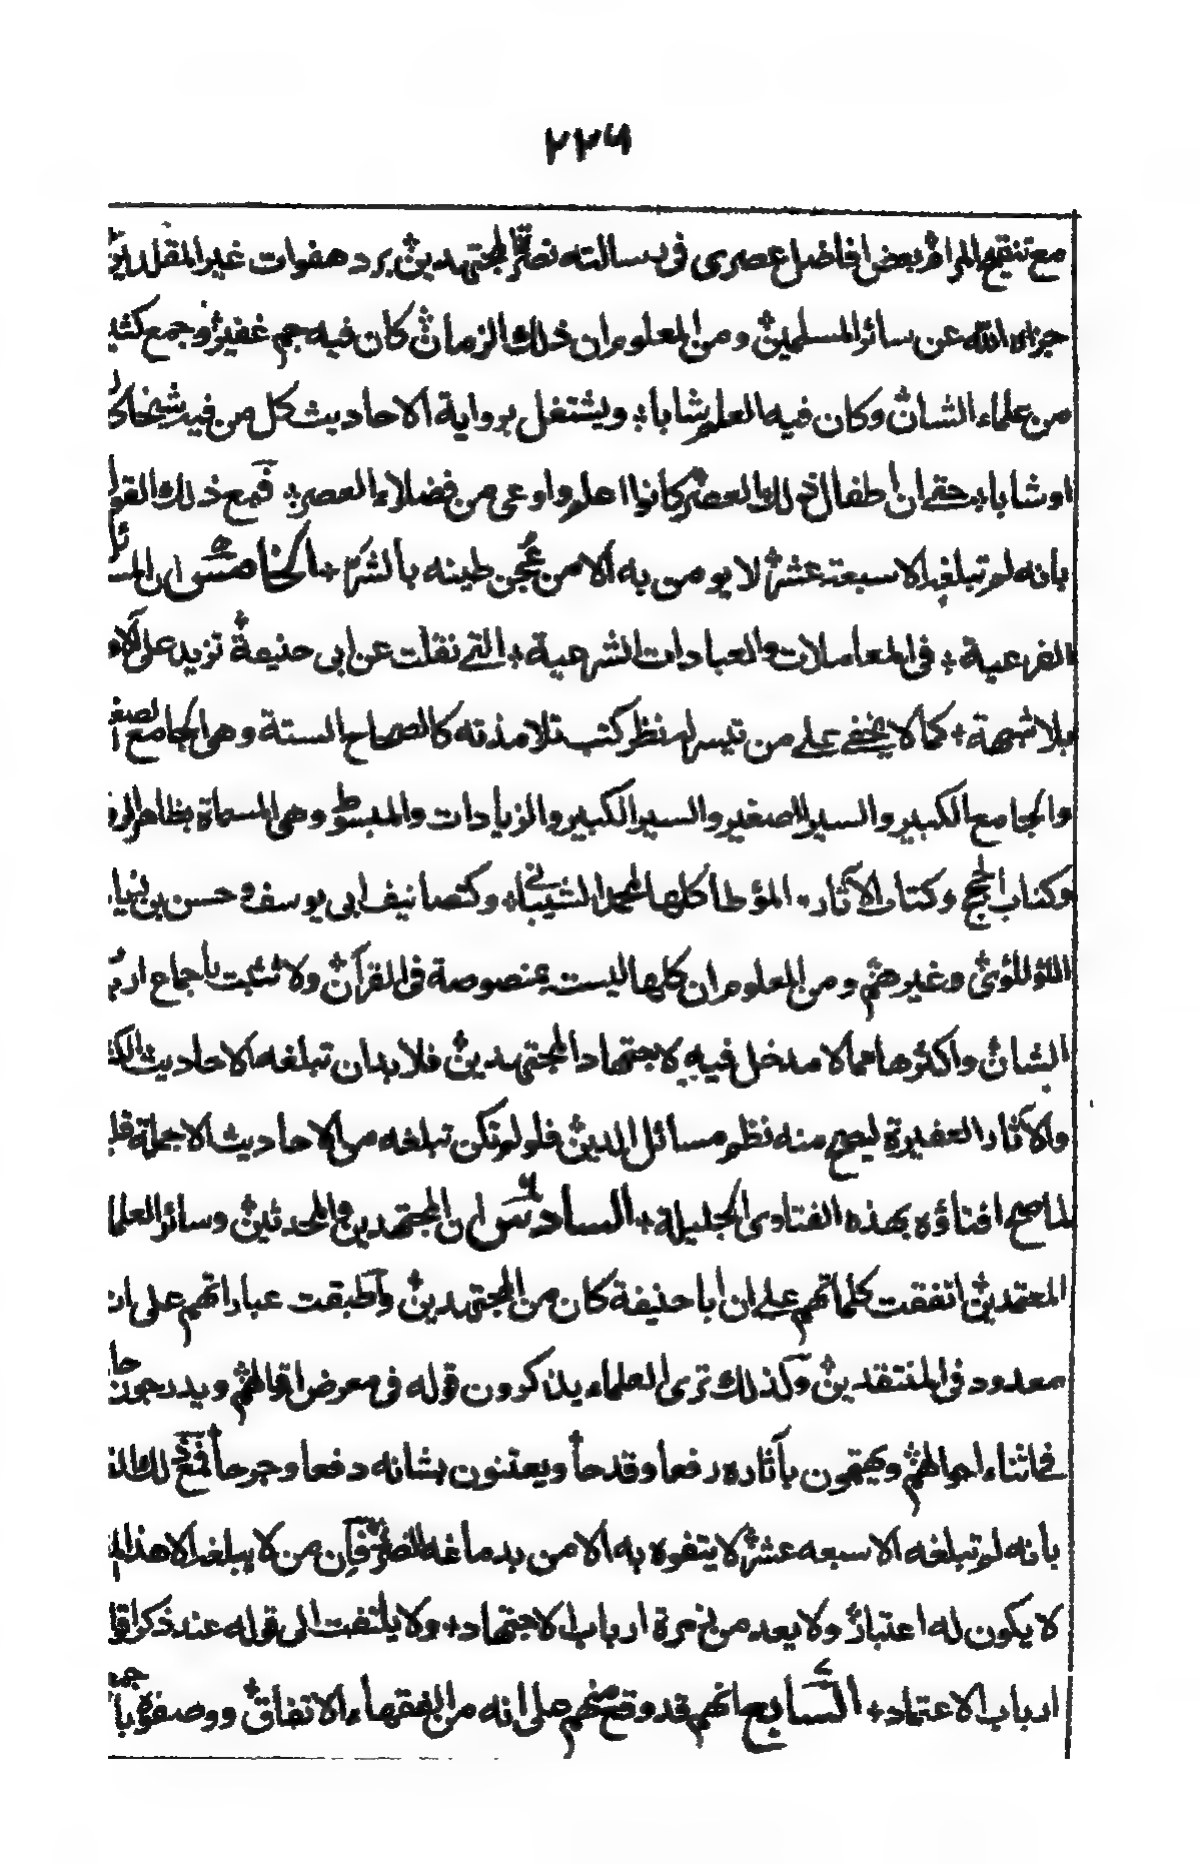 ٢٢٦
مع تنقيح المرام بعض افاضل عصرى فى رسالته نصرة المجتهدين برد هفوات غير المقلدين
جزاه الله عن سائر المسلمين ومن المعلوم ان ذلك الزمان كان فيه جم غفير وجمع كثير
من علماء الشان وكان فيه العلم شابا ويشتغل برواية الاحاديث كل من فيه شيخا كان
او شابا حتى ان اطفال ذلك العصر كانوا اعلم واوعى من فضلاء العصر فمع ذلك القول
بانه لم تبلغه الا سبعة عشر لا يومن به الا من عجن طينه بالشر الخامس ان المسائل
الفرعية فى المعاملات والعبادات الشرعية التى نقلت عن ابى حنيفة تزيد على
بلا شبهة كما لا يخفى على من تيسر له نظر كتب تلامذته كالصحاح الستة وهى الجامع الصغير
والجامع الكبير والسير الصغير والسير الكبير والزيادات والمبسوط وهى المسماة بظاهر
وكتاب الحجج وكتاب الآثار المؤطا كلها لمحمد الشيبانى وكتصانيف ابى يوسف وحسن بن زياد
اللؤلؤى وغيرهم ومن المعلوم ان كلها ليست بمنصوصة فى القرآن ولا ثبتت باجماع
الشان واكثرها مما لا مدخل فيه لاجتهاد المجتهدين فلا بد ان تبلغه الاحاديث
والآثار الغفيرة ليصح منه نظم مسائل الدين فلو لم تكن تبلغه من الاحاديث الا جملة
لما صح افتاؤه بهذه الفتاوى الجليلة السادس ان المجتهدين والمحدثين وسائر العلماء
المعتمدين اتفقت كلماتهم على ان ابا حنيفة كان من المجتهدين واطبقت عباراتهم على ان
معدود فى المنتقدين وكذلك ترى العلماء يذكرون قوله فى معرض اقوالهم ويدرجون
فى اثناء احوالهم ويهتمون بآثاره رفعا وقدحا ويعتنون بشانه دفعا وجرحا فمع ذلك
بانه لم تبلغه الا سبعه عشر لا يتفوه به الا من بدماغه الضر فان من لا يبلغه الا هذا
لا يكون له اعتبار ولا يعد من زمرة ارباب الاجتهاد ولا يلتفت الى قوله عند ذكر
ارباب الاعتماد السابع انهم قد وقع منهم على انه من الفقهاء الاتفاق ووصفوه